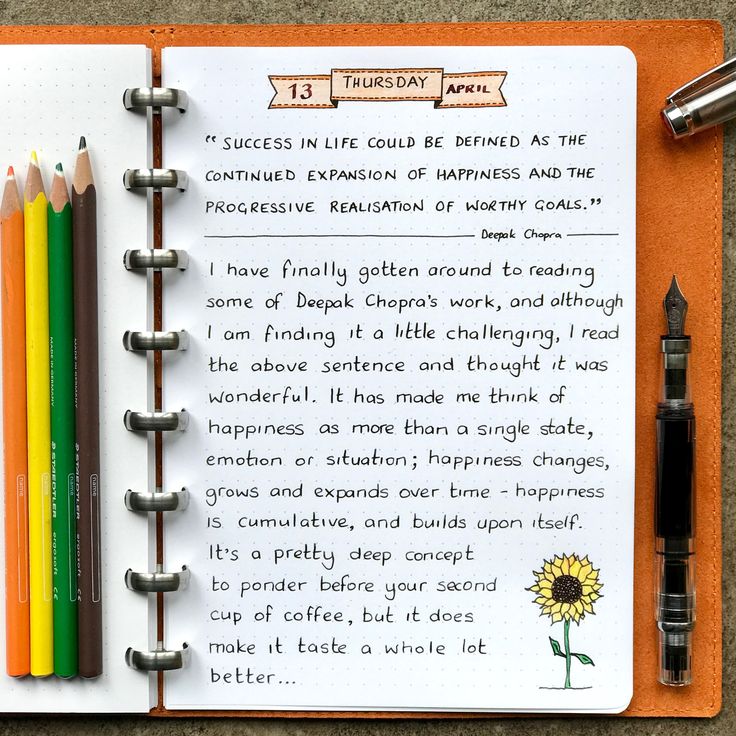 13 THURSDAY APRIL
" SUCCESS IN LIFE COULD BE DEFINED AS THE
CONTINUED EXPANSION OF HAPPINESS AND THE
PROGRESSIVE REALISATION OF WORTHY GOALS."
Deepak Chopra
I have finally gotten around to reading
some of Deepak Chopra's work, and although
I am finding it a little challenging, I read
the above sentence and thought it was
wonderful. It has made me think of
happiness as more than a single state,
emotion or situation; happiness changes,
grows and expands over time - happiness
is cumulative, and builds upon itself.
It's a pretty deep concept
to ponder before your second
cup of coffee, but it does
make it taste a whole lot
better...
MADE IN GERMANY
STAEDTLER
ergosoft
CE
name
MADE IN GERMANY
STAEDTLER
ergosoft
CE
name
name
name